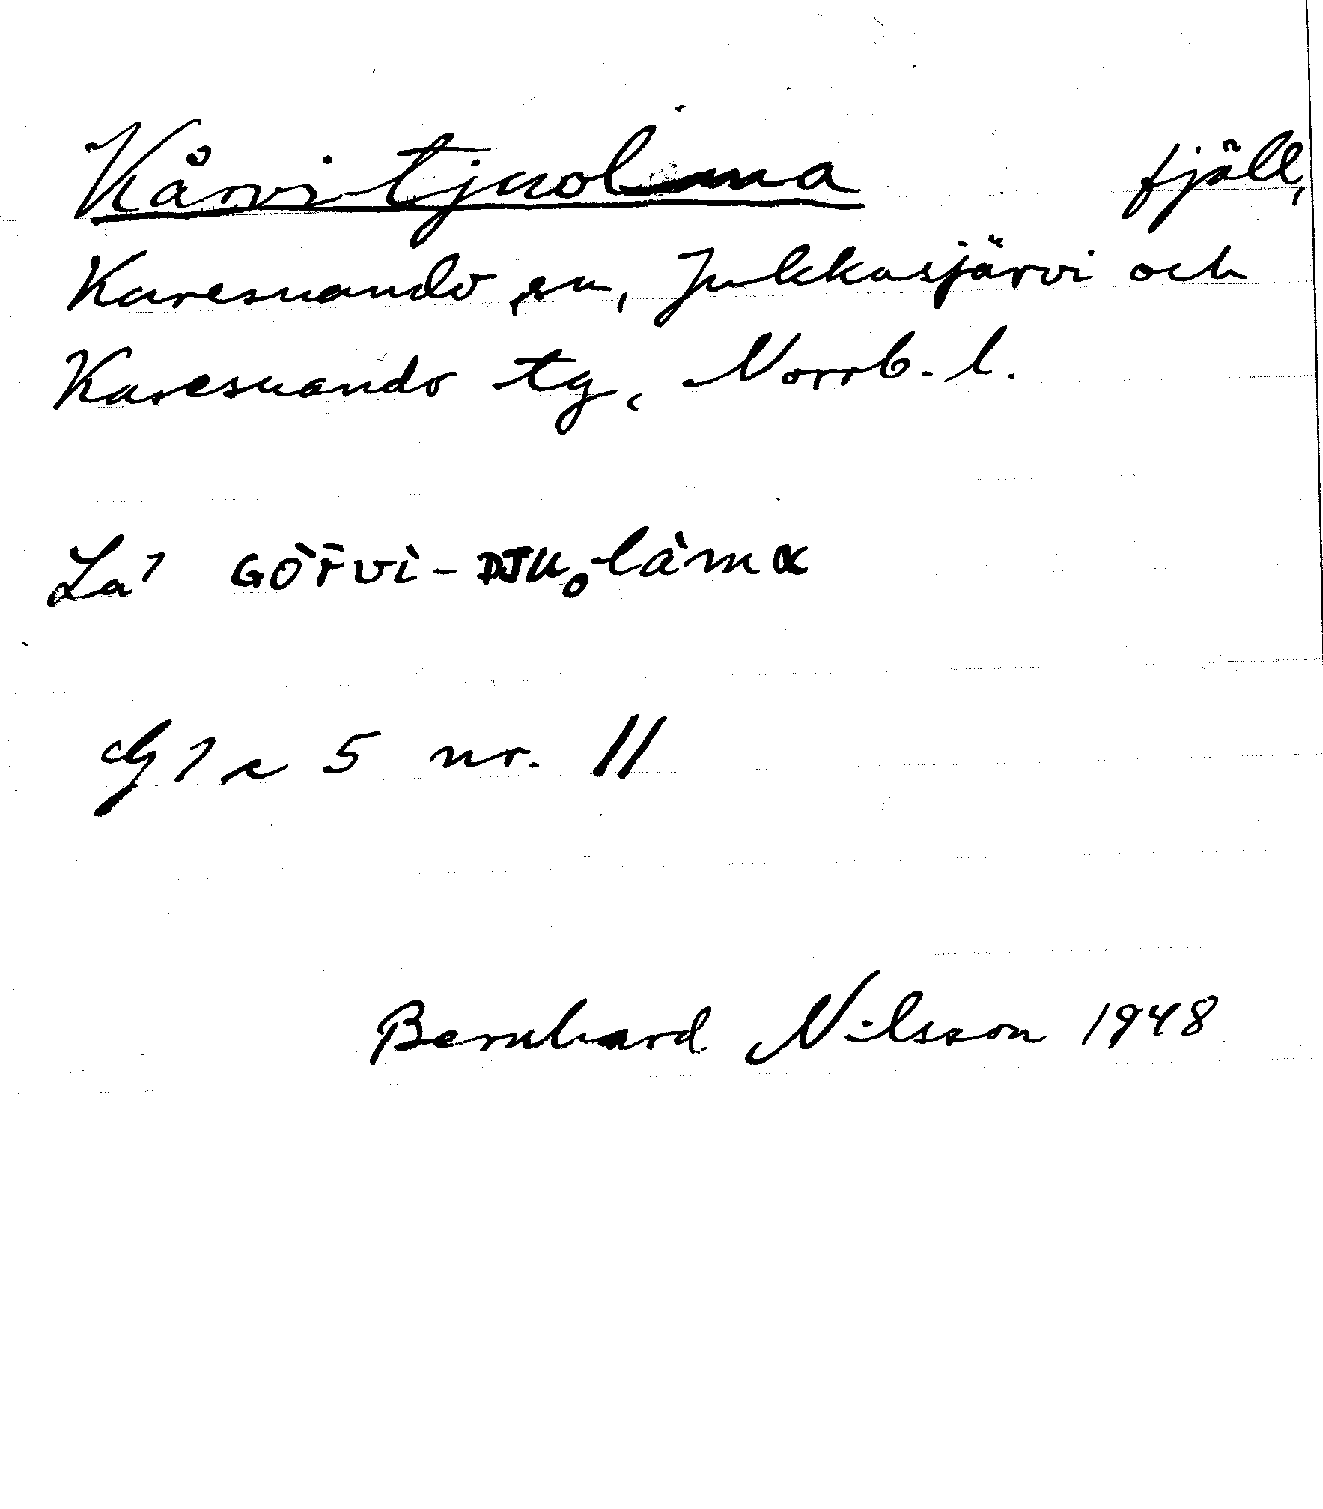 Kårvitjuolma fjäll,
Karesuando sn, Jukkasjärvi och
Karesuando tg, Norrb. l.
La7 GÒr̄vì-DJUolàmɑ
nr. 11
Bernhard Nilsson 1948